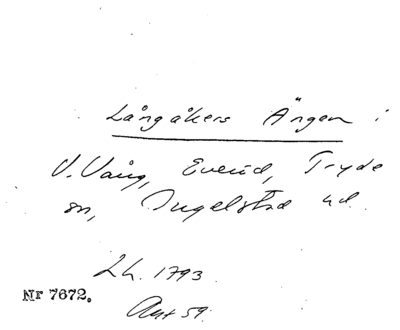 Långåkers Ängen i
V. Vång, Everöd, Tryde
sn, Ingelstad hd.
Lh. 1793
Nr 7672.
Akt 59.